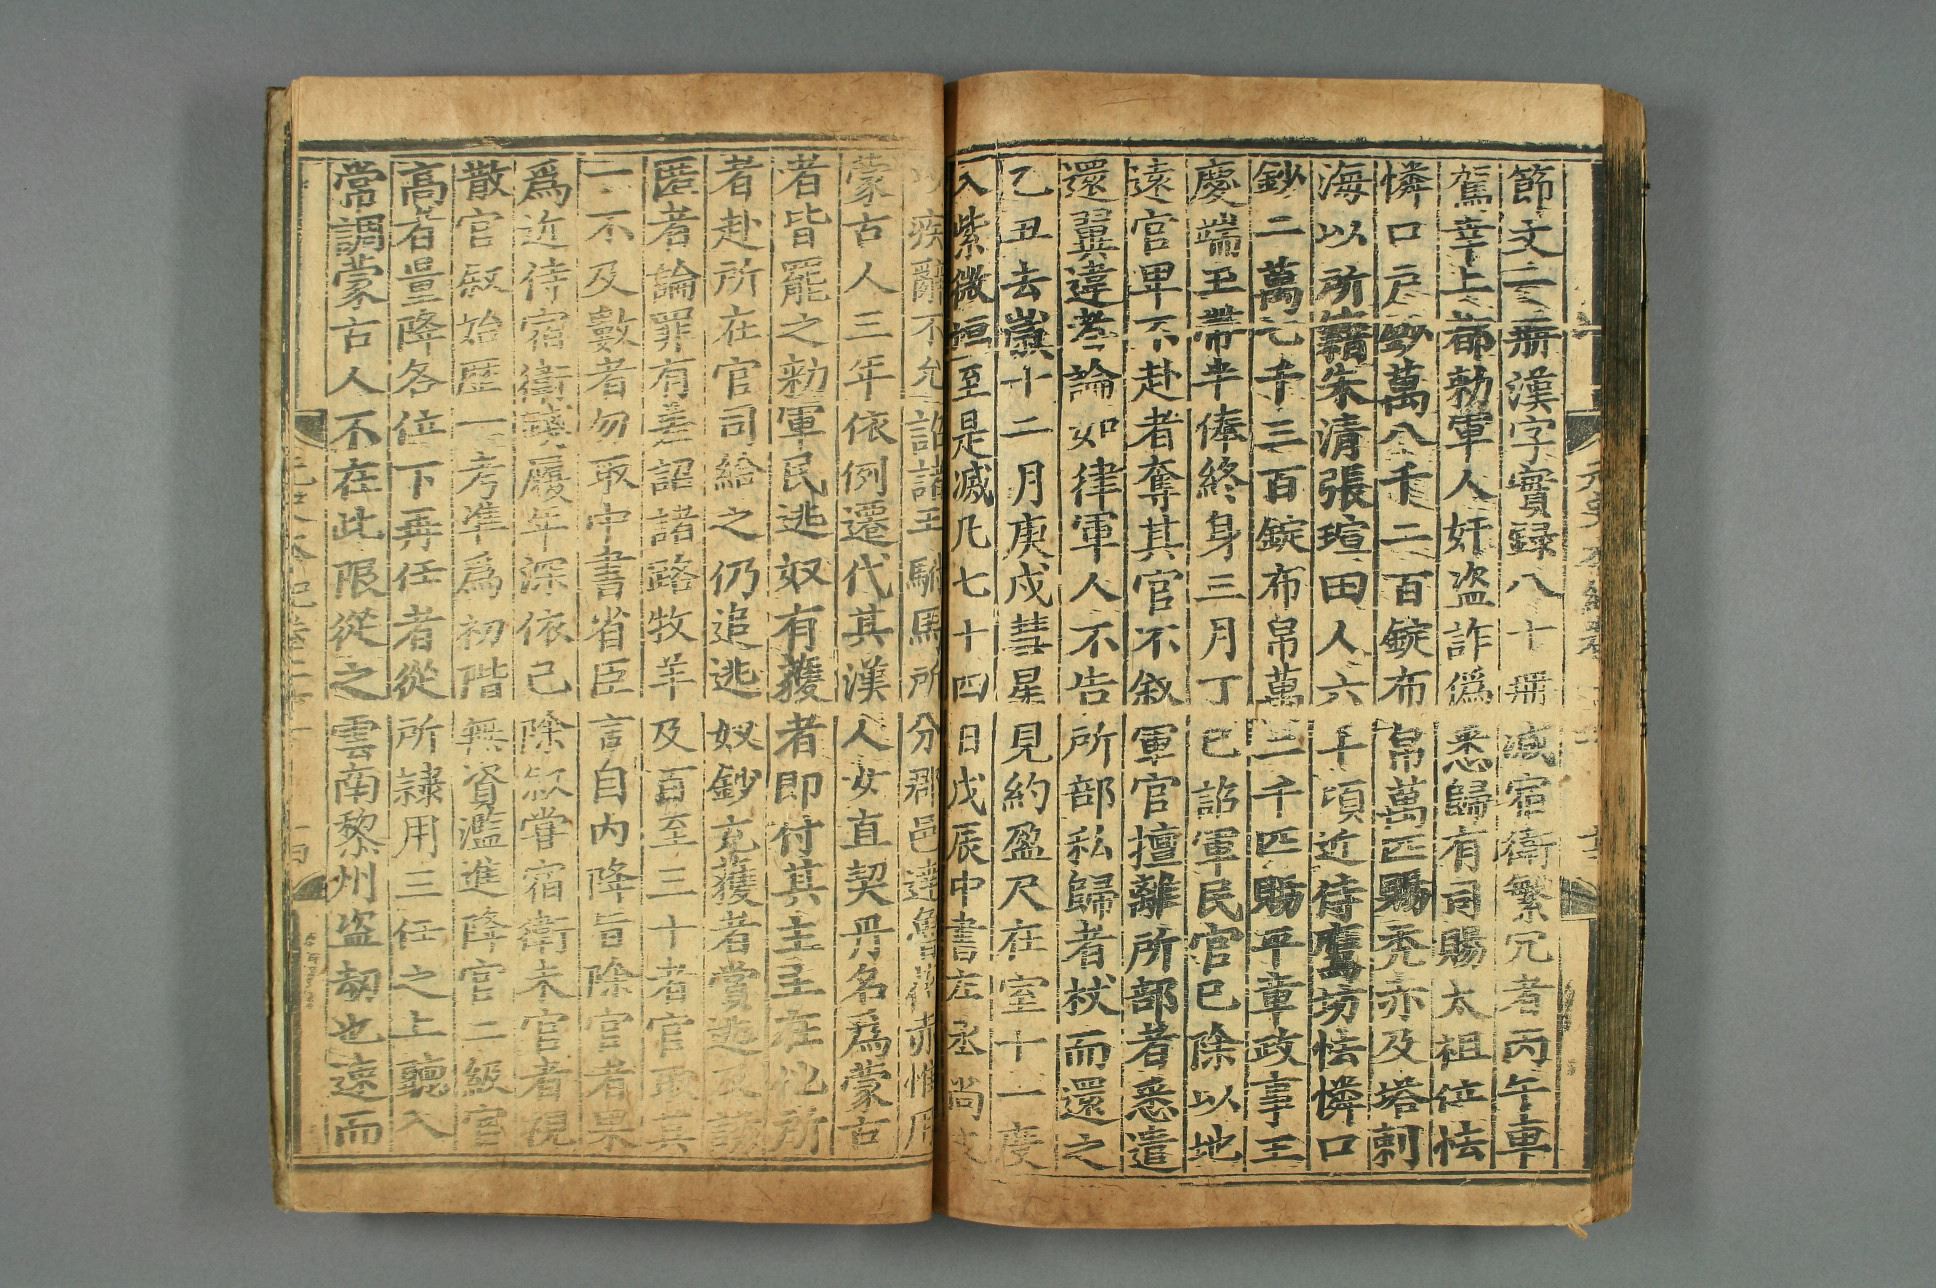 節文二冊漢字實録八十冊減宿衛繁冗者丙午車
駕幸上都勑軍人奸盗詐偽悉歸有司賜太祖位怯
憐口戶鈔萬八千二百錠布帛萬匹賜禿赤及塔剌
海以所籍朱清張瑄田人六十頃近侍鷹坊怯憐口
鈔二萬七千三百錠布帛萬二千匹賜平章政事王
慶端玉帶半俸終身三月丁巳詔軍民官已除以地
遠官卑不赴者奪其官不叙軍官擅離所部者悉遣
還翼違者論如律軍人不告所部私歸者杖而還之
乙丑去嵗十二月庚戌彗星見約盈尺在室十一度
入紫微垣至是滅凡七十四日戊辰中書左丞尚文
以疾辭不允詔諸王駙馬所分郡邑達魯花赤惟用
蒙古人三年依例遷代其漢人女直契丹名爲蒙古
者皆罷之勑軍民逃奴有獲者即付其主主在他所
者赴所在官司給之仍追逃奴鈔充獲者賞逃及誘
匿者論罪有差詔諸路牧羊及百至三十者官取其
一不及數者勿取中書省臣言自内降旨除官者果
爲近侍宿衛踐履年深依已除叙嘗宿衛未官者視
散官叙始歴一考准爲初階無資濫進降官二級官
高者量降各位下再任者從所隷用三任之上聽入
常調蒙古人不在此限從之雲南黎州盗劫也速而
元史本紀卷二十一
十四